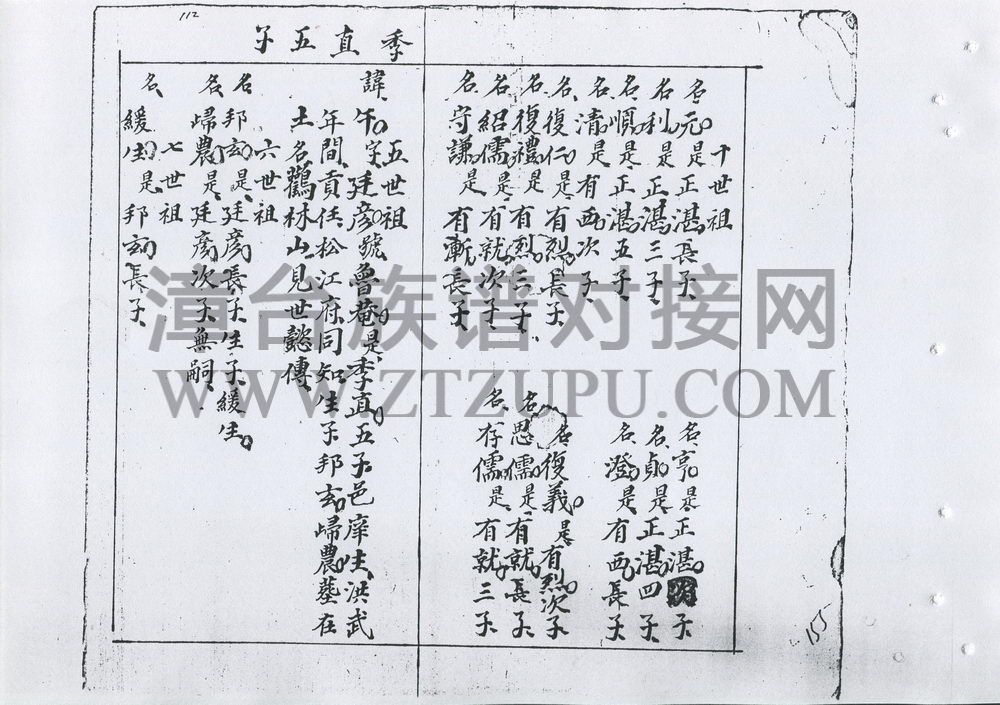 112
季直五子
十世祖
名元是正湛長子 名亨是正湛次子
名利是正湛三子 名貞是正湛四子
名順是正湛五子
名清是有西次子 名澄是有西長子
名復仁是有烈長子 名復義是有烈次子
名復禮是有烈三子 名思儒是有就長子
名紹儒是有就次子 名存儒是有就三子
名守謙是有漸長子
五世祖
諱午字廷彦號魯菴是季直五子邑庠生洪武
年間貢任松江府同知生子邦玄歸農墓在
土名鸛林山見世懿傳
六世祖
名邦玄是廷彦長子生子緩生
名歸農是廷彦次子無嗣
七世祖
名緩生是邦玄長子
155
漳台族谱对接网
WWW.ZTZUPU.COM